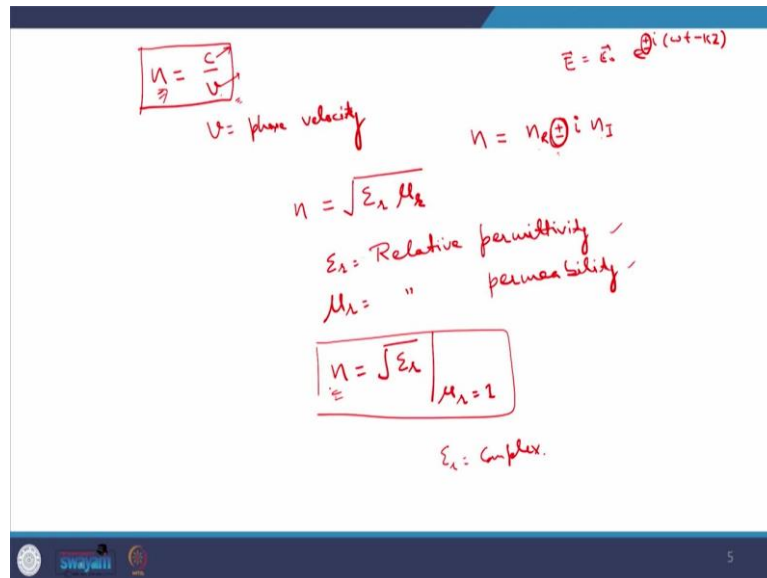 n = c/v
E⃗ = E⃗₀ e^±i(ωt-kz)
v = phase velocity
n = n_R ± i n_I
n = √(ε_r μ_r)
ε_r = Relative permittivity
μ_r = " permeability
n = √ε_r | μ_r = 1
ε_r = Complex.
swayam
5